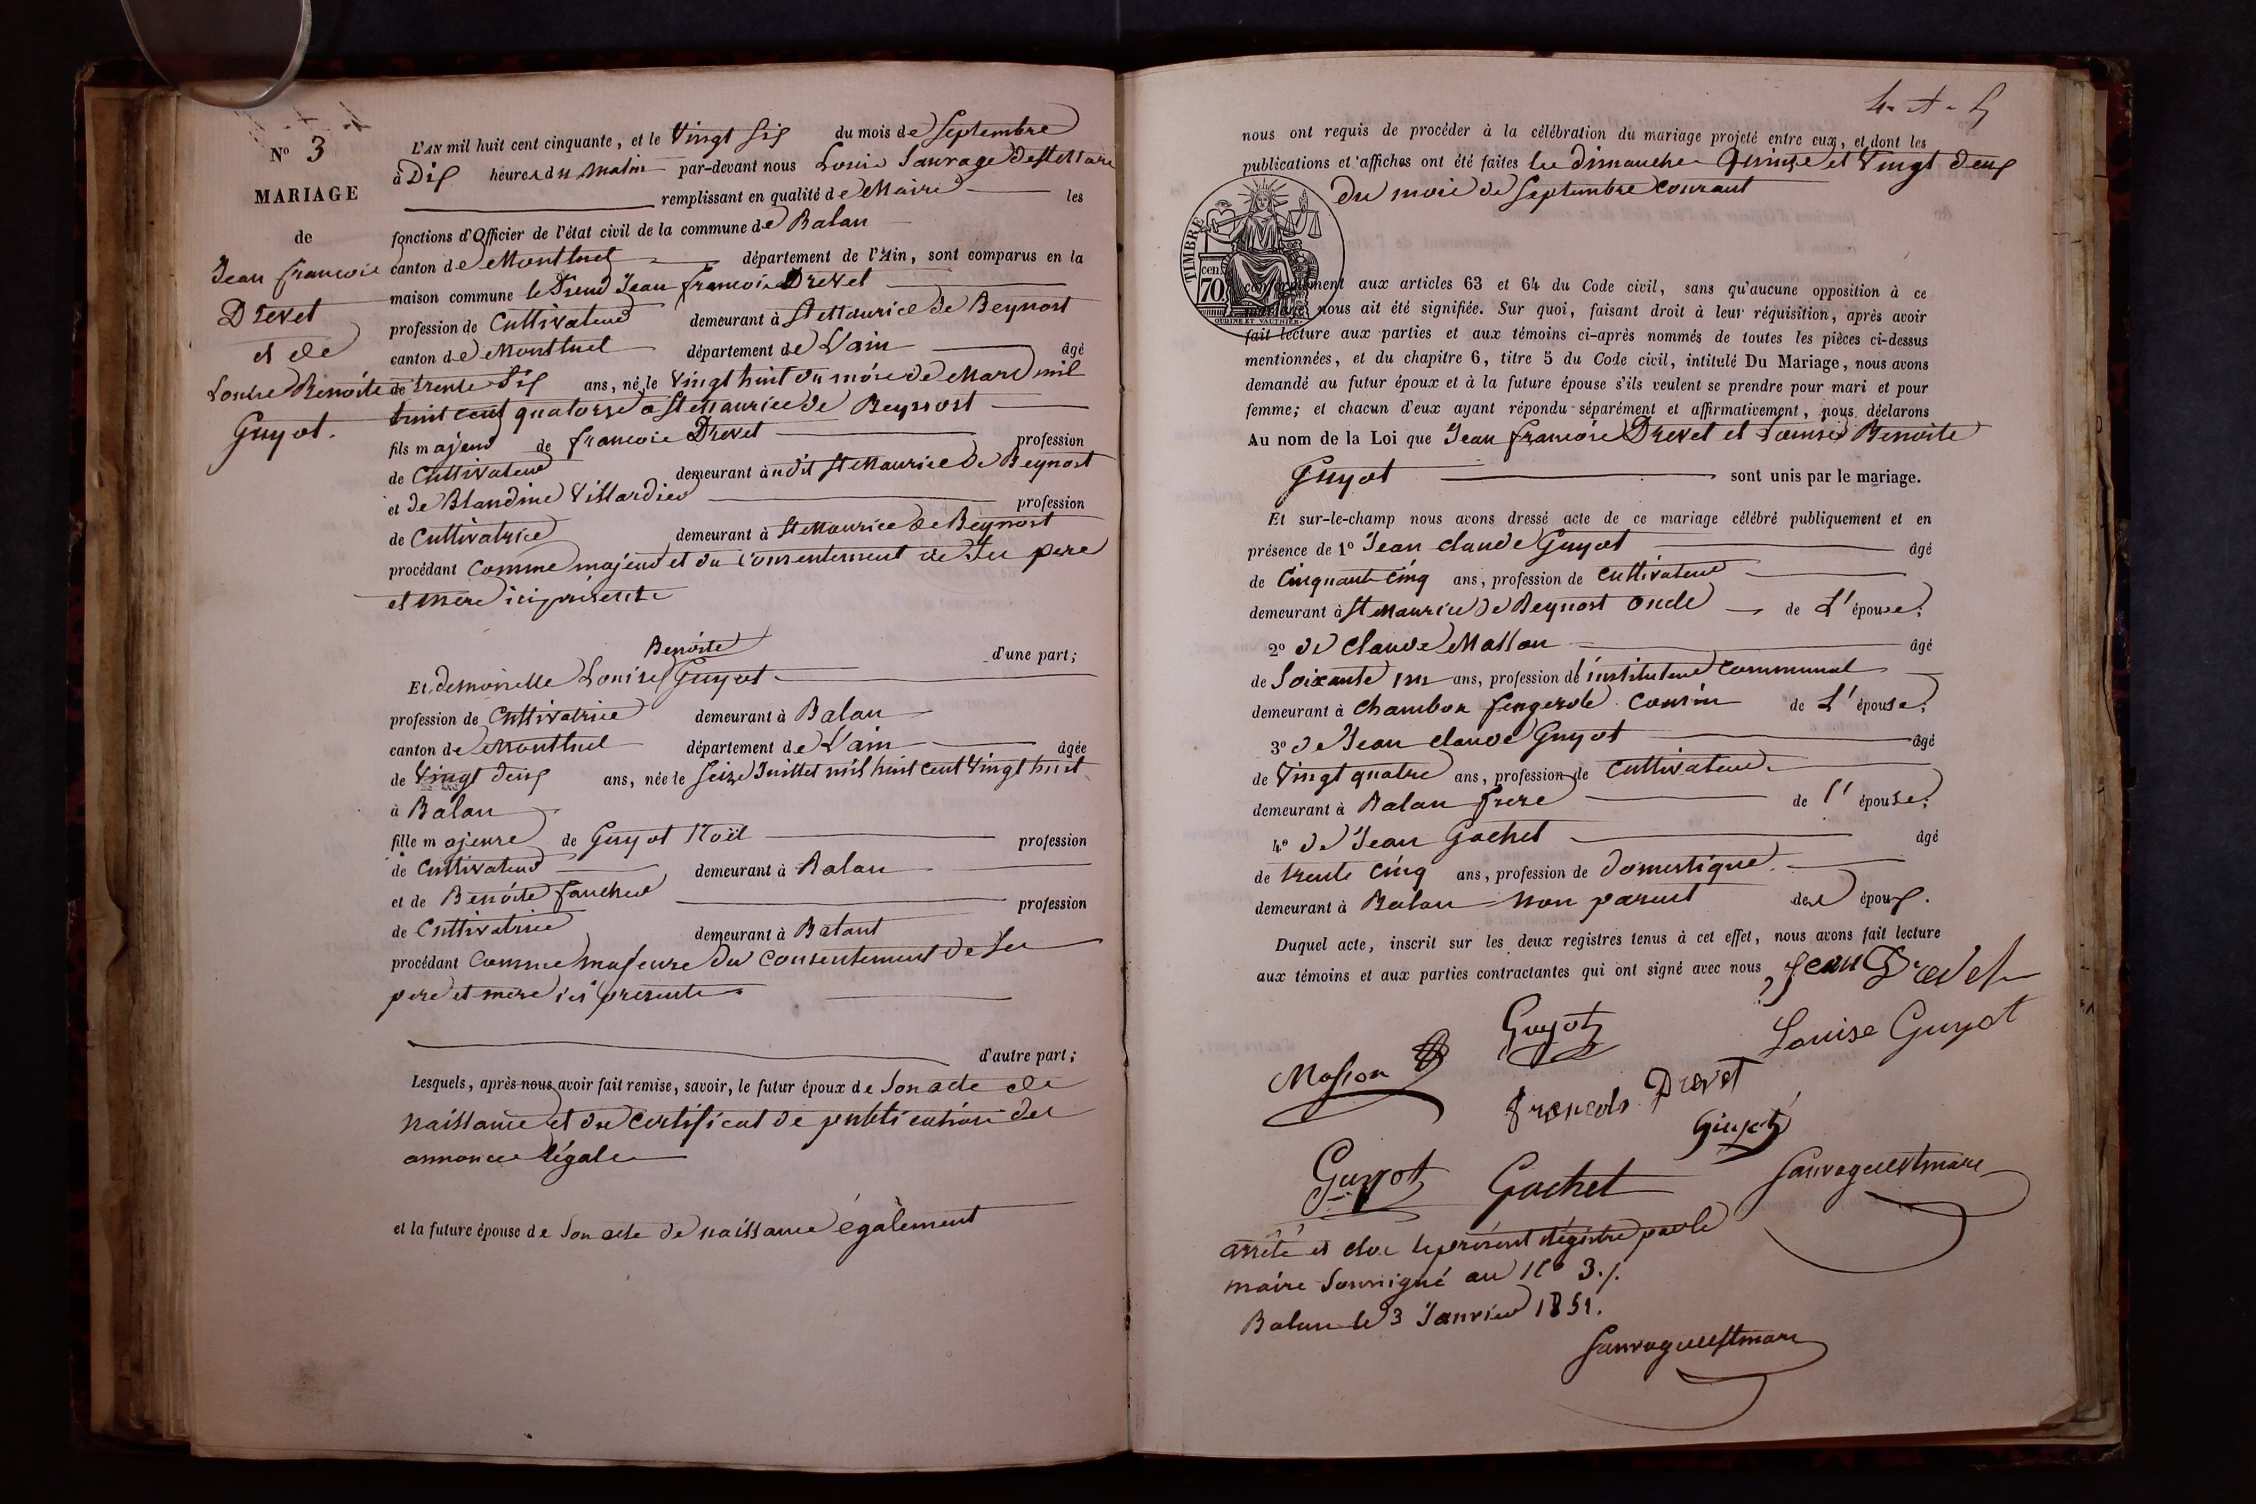 N° 3
MARIAGE
de
Jean françois
Drevet
et de
Louise Benoite
Guyot.
L'AN mil huit cent cinquante, et le Vingt Six du mois de Septembre
à Dix heures du matin par-devant nous Louis Sauvage
remplissant en qualité de Maire les
fonctions d'Officier de l'état civil de la commune de Balan
canton de Montluel département de l'Ain, sont comparus en la
maison commune le Sieur Jean françois Drevet
profession de Cultivateur demeurant à St Maurice de Beynost
canton de Montluel département de L'ain âgé
de trente Six ans, né le Vingt huit du mois de Mars mil
huit cent quatorze à St Maurice de Beynost
fils majeur de françois Drevet profession
de Cultivateur demeurant à udit St Maurice de Beynost
et de Blandine Villardier profession
de Cultivatrice demeurant à St Maurice de Beynost
procédant comme majeur et du consentement de Ses pere
et mere ici présents
d'une part;
Benoite
Et demoiselle Louise Guyot
profession de Cultivatrice demeurant à Balan
canton de Montluel département de L'ain âgée
de Vingt deux ans, née le Seize Juillet mil huit cent Vingt huit
à Balan
fille majeure de Guyot Noël profession
de Cultivateur demeurant à Balan
et de Benoite faucheur profession
de Cultivatrice demeurant à Balant
procédant comme majeure du consentement de Ses
pere et mere ici présents
d'autre part;
Lesquels, après nous avoir fait remise, savoir, le futur époux de Son acte de
naissance et du certificat de publication des
annonces légales
et la future épouse de Son acte de naissance également
4-A-5
nous ont requis de procéder à la célébration du mariage projeté entre eux, et dont les
publications et affiches ont été faites les dimanches Quinze et Vingt deux
du mois de Septembre courant
TIMBRE
70 cen
OUDINE ET VAUTHIER
conformément aux articles 63 et 64 du Code civil, sans qu'aucune opposition à ce
mariage nous ait été signifiée. Sur quoi, faisant droit à leur réquisition, après avoir
fait lecture aux parties et aux témoins ci-après nommés de toutes les pièces ci-dessus
mentionnées, et du chapitre 6, titre 5 du Code civil, intitulé Du Mariage, nous avons
demandé au futur époux et à la future épouse s'ils veulent se prendre pour mari et pour
femme; et chacun d'eux ayant répondu séparément et affirmativement, nous déclarons
Au nom de la Loi que Jean françois Drevet et Louise Benoite
Guyot sont unis par le mariage.
Et sur-le-champ nous avons dressé acte de ce mariage célébré publiquement et en
présence de 1° Jean claude Guyot âgé
de Cinquante Cinq ans, profession de cultivateur
demeurant à St Maurice de Beynost oncle de L'épouse;
2° de Claude Masson âgé
de Soixante un ans, profession de instituteur communal
demeurant à Chambon feugerole cousin de L'épouse;
3° de Jean claude Guyot âgé
de Vingt quatre ans, profession de cultivateur
demeurant à Balan frere de l'épouse;
4° de Jean Gachet âgé
de trente Cinq ans, profession de domestique
demeurant à Balan non parent des époux.
Duquel acte, inscrit sur les deux registres tenus à cet effet, nous avons fait lecture
aux témoins et aux parties contractantes qui ont signé avec nous, Jean Drevet
Guyot
Louise Guyot
Masson
françois Drevet
Guyot
Guyot
Gachet
arrêté et clos le présent régistre par le
maire Soussigné au N° 3./.
Balan le 3 Janvier 1851.